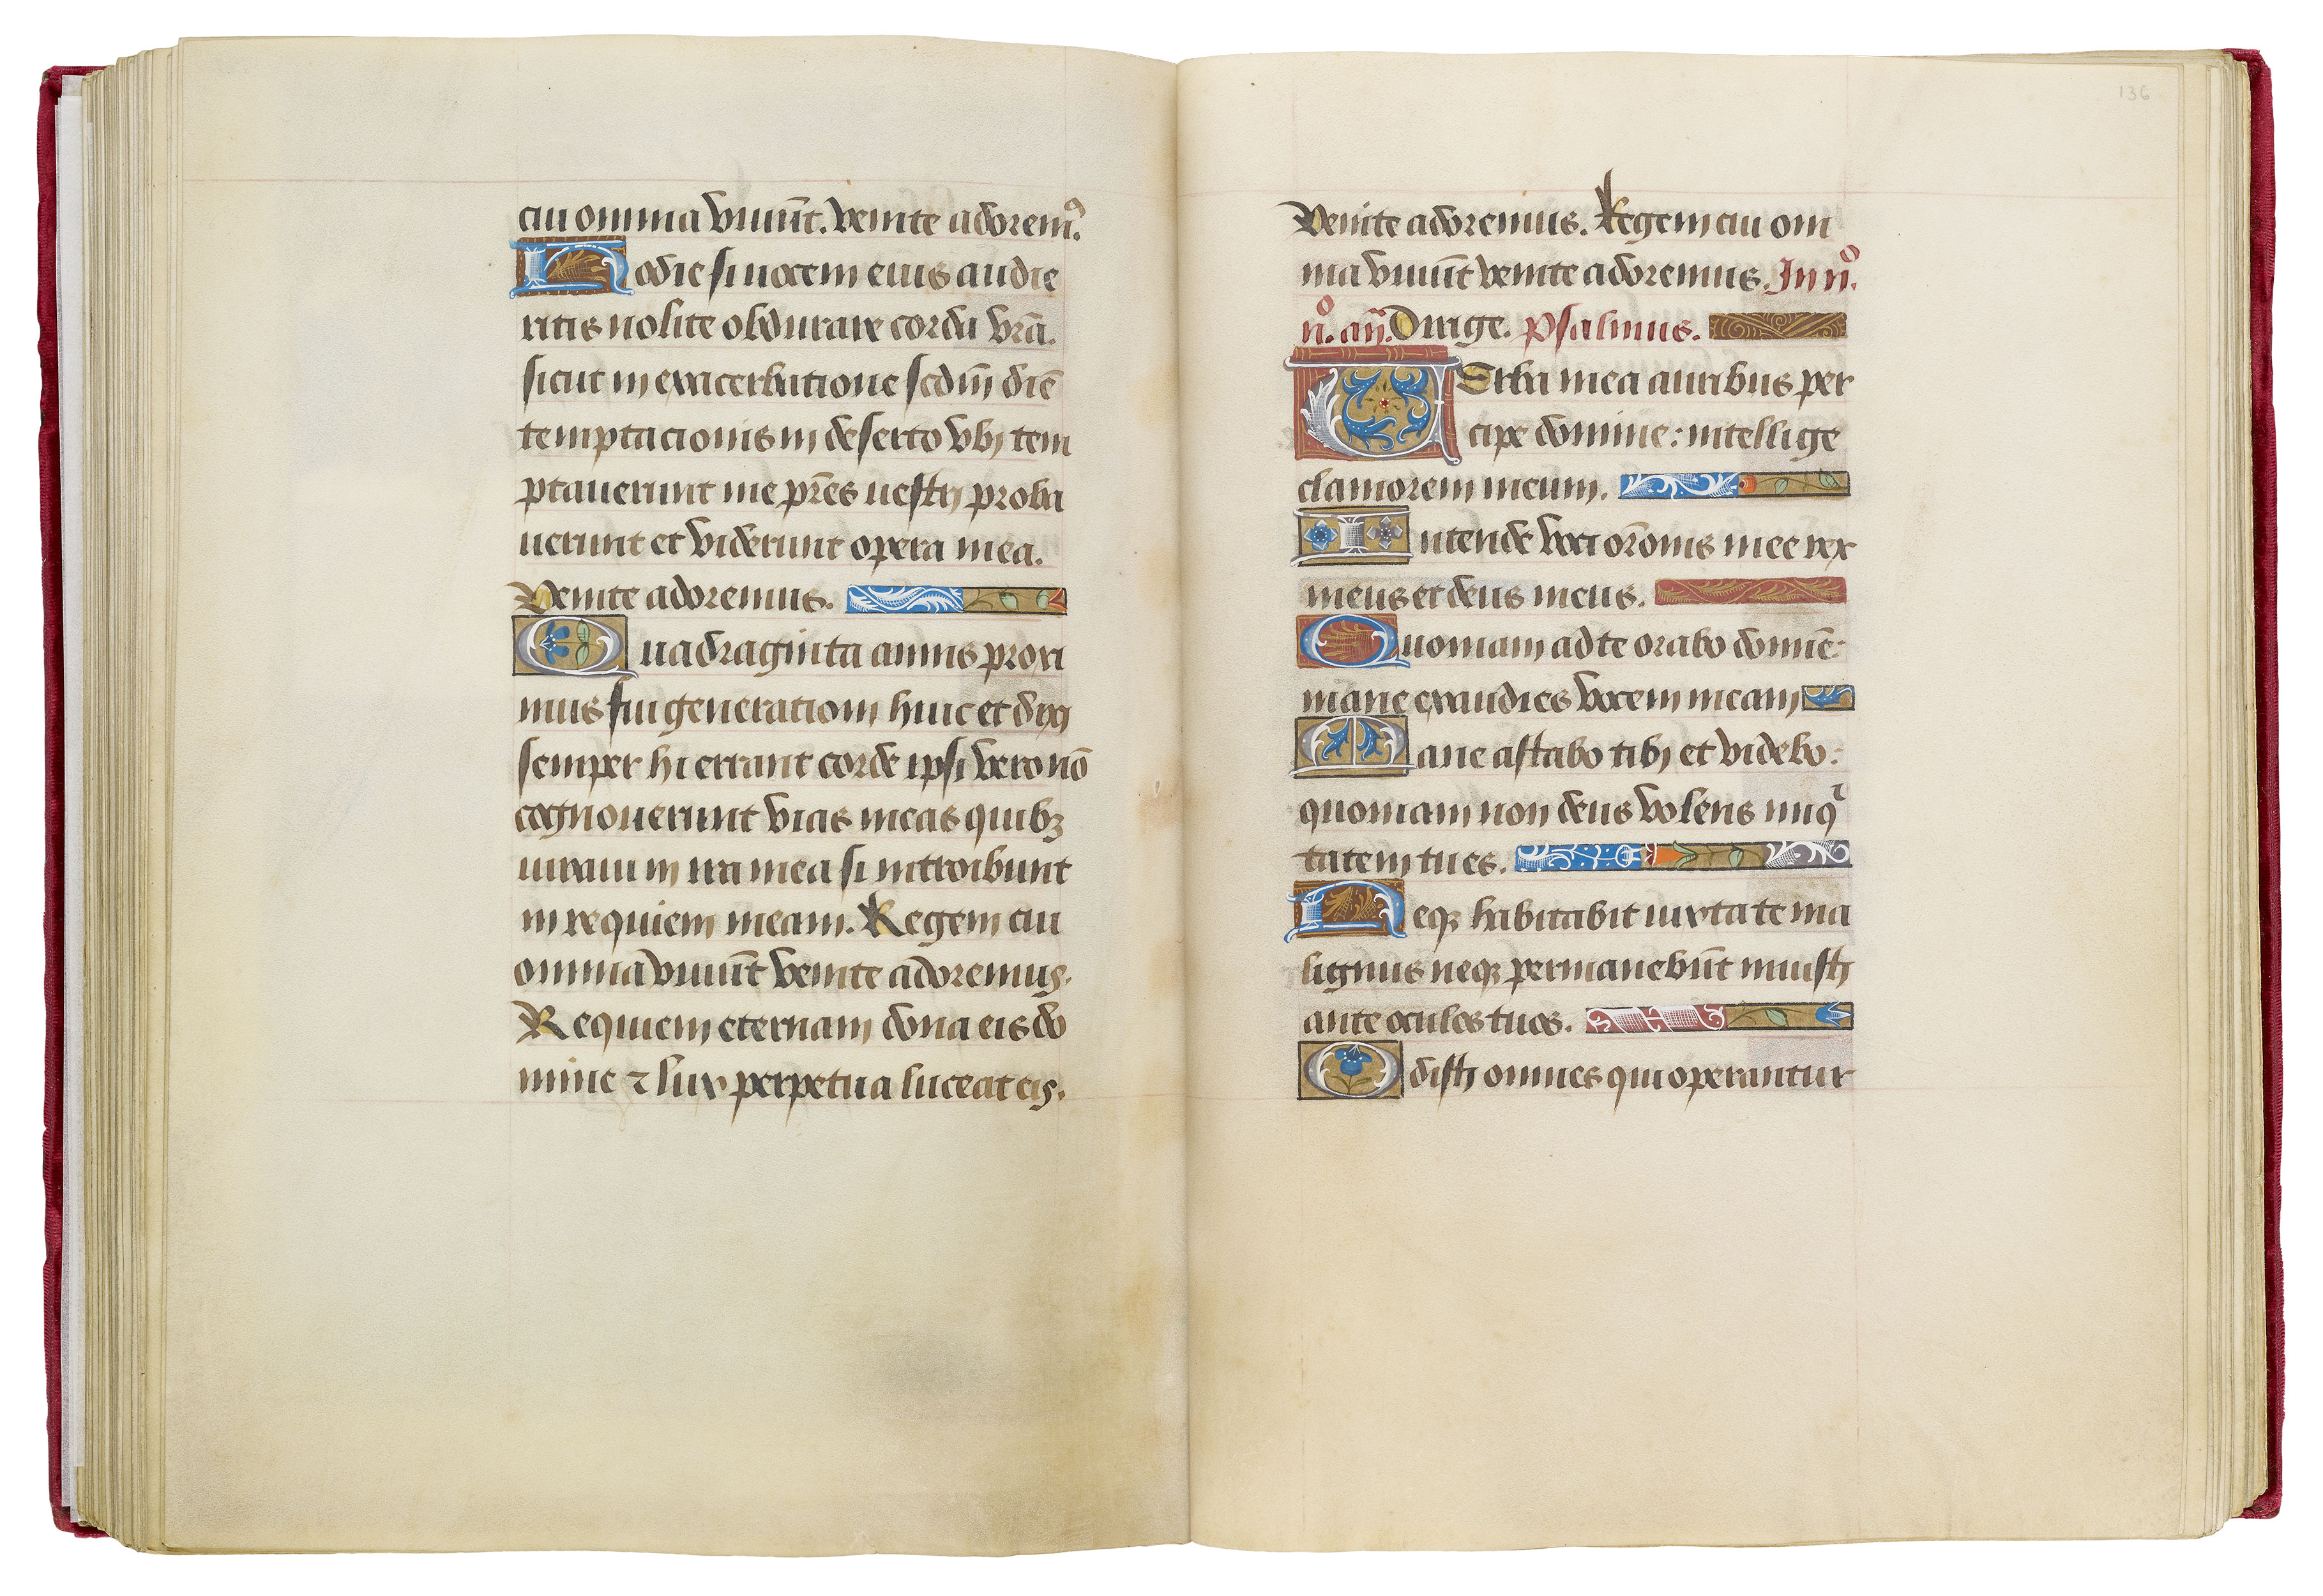 cui omnia viuūt. venite adorem⁹.
Hodie si uocem eius audie
ritis nolite obdurare corda vrā.
sicut in exacerbatione scdm̄ diē
temptacionis in deserto vbi tem
ptauerunt me pr̄es uestri proba
uerunt et viderunt opera mea.
Venite adoremus.
Quadraginta annis proxi
mus fui generationi huic et dixi
semper hi errant corde ipsi vero nō
cognouerunt vias meas quibꝫ
iuraui in ira mea si introibunt
in requiem meam. Regem cui
omnia viuūt venite adoremus.
Requiem eternam dona eis do
mine ⁊ lux perpetua luceat eis.
136
Venite adoremus. Regem cui om
nia viuūt venite adoremus. In n̊.
n̊. an̄. Dirige. Psalmus.
Verba mea auribus per
cipe domine: intellige
clamorem meum.
Intende voci orōnis mee rex
meus et deus meus.
Quoniam ad te orabo domiē:
mane exaudies vocem meam
Mane astabo tibi et videbo:
quoniam non deus volens iniqͥ
tatem tu es.
Neqꝫ habitabit iuxta te ma
lignus neqꝫ permanebūt iniusti
ante oculos tuos.
Odisti omnes qui operantur